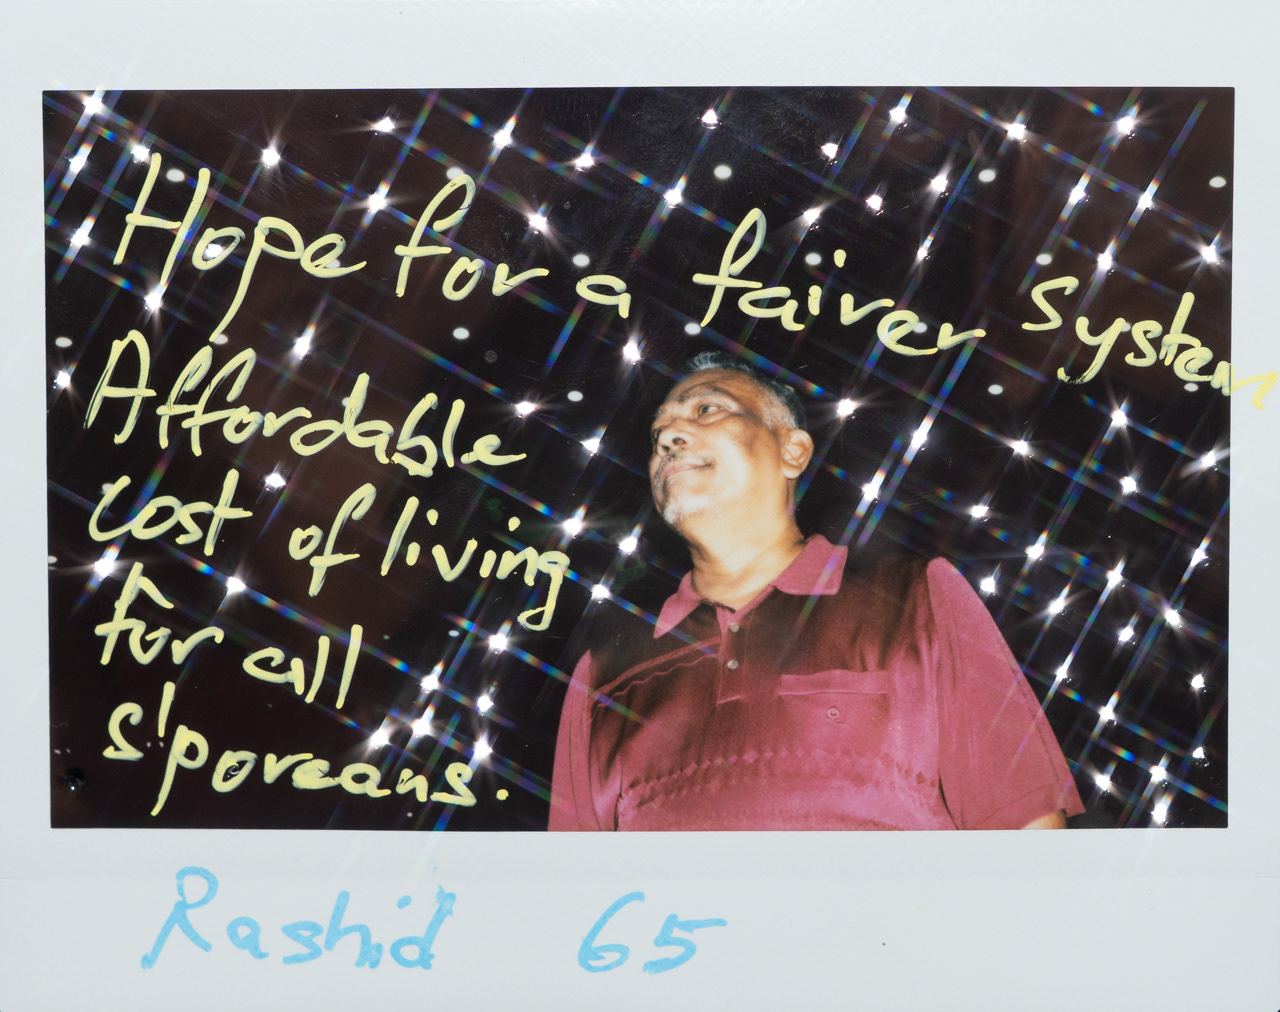 Hope for a fairer system
Affordable
cost of living
for all
S'poreans.
Rashid 65